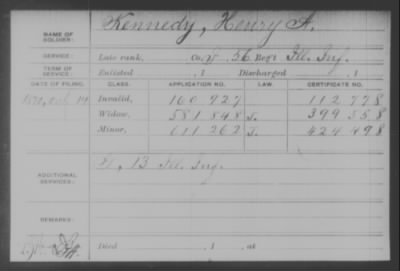 NAME OF SOLDIER: Kennedy, Henry A.
SERVICE: Late rank, Co. 56 Reg't Ill. Inf.
TERM OF SERVICE: Enlisted , 1 Discharged , 1
DATE OF FILING. CLASS. APPLICATION NO. LAW. CERTIFICATE NO.
1870, Oct 14 Invalid, 160 927 112 778
Widow, 581 848 S. 399 558
Minor, 611 262 S. 424 498
ADDITIONAL SERVICES: 13 Ill. Inf.
REMARKS:
Died , 1 , at